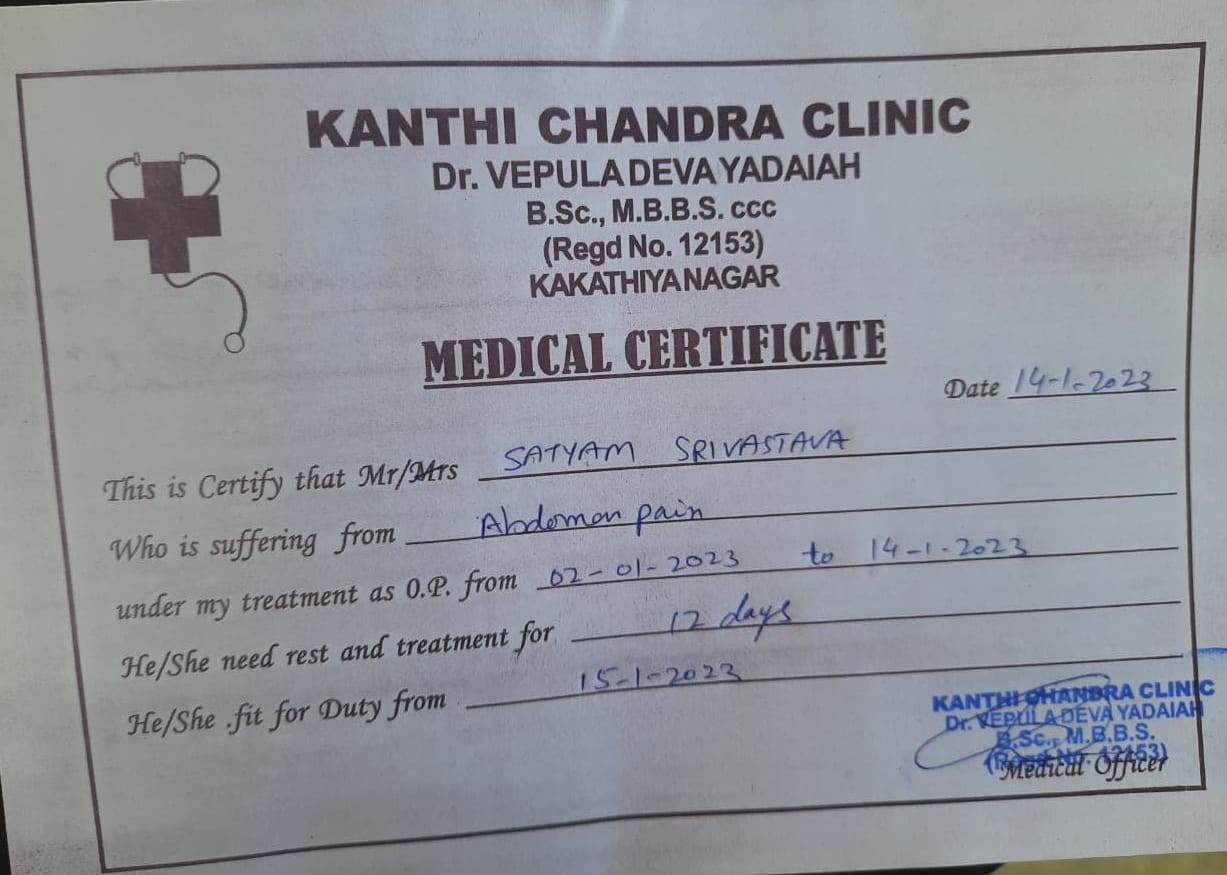 KANTHI CHANDRA CLINIC
Dr. VEPULA DEVA YADAIAH
B.Sc., M.B.B.S. ccc
(Regd No. 12153)
KAKATHIYA NAGAR
MEDICAL CERTIFICATE
Date 14-1-2023
This is Certify that Mr/Mrs SATYAM SRIVASTAVA
Who is suffering from Abdomon pain
under my treatment as O.P. from 02-01-2023 to 14-1-2023
He/She need rest and treatment for 12 days
He/She .fit for Duty from 15-1-2023
KANTHI CHANDRA CLINIC
Dr. VEPULA DEVA YADAIAH
B.Sc., M.B.B.S.
(Regd No. 12153)
Medical Officer